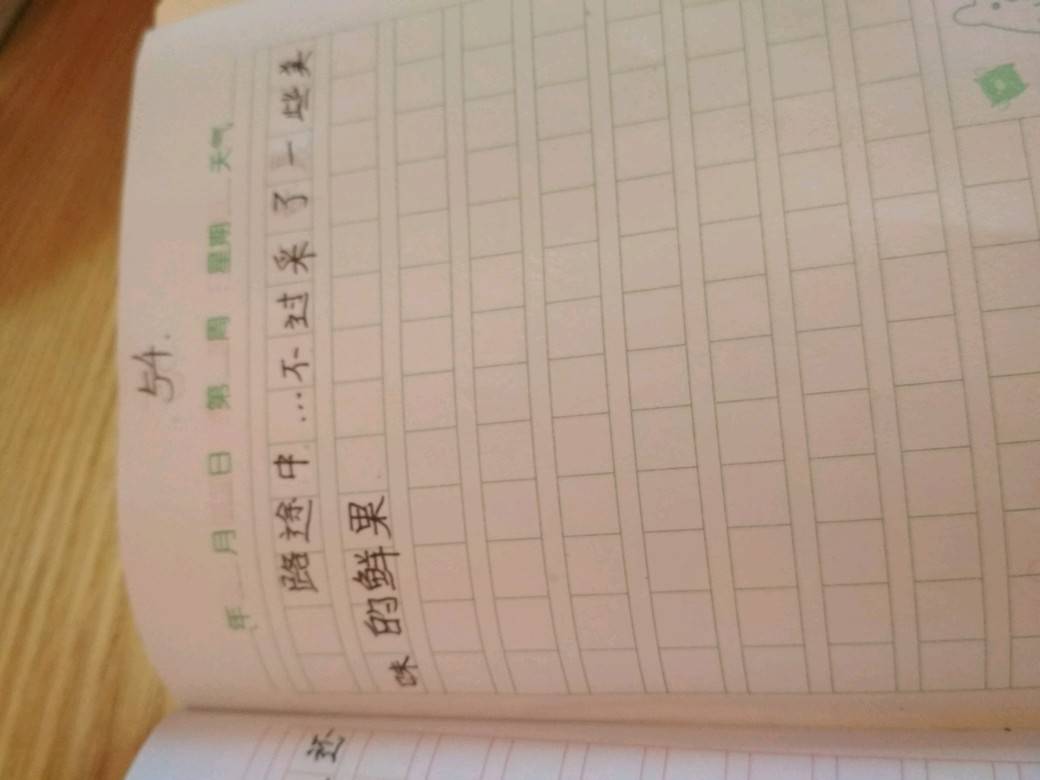 54.
年 月 日 第 周 星期 天气
路途中…不过采了一些美
味的鲜果
还